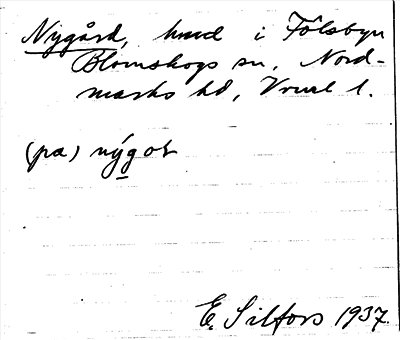 Nygård, hmd i Fölsbyn
Blomskogs sn, Nord-
marks hd, Vrml l.
(pa) nýgoṭ
E. Silfors 1937.